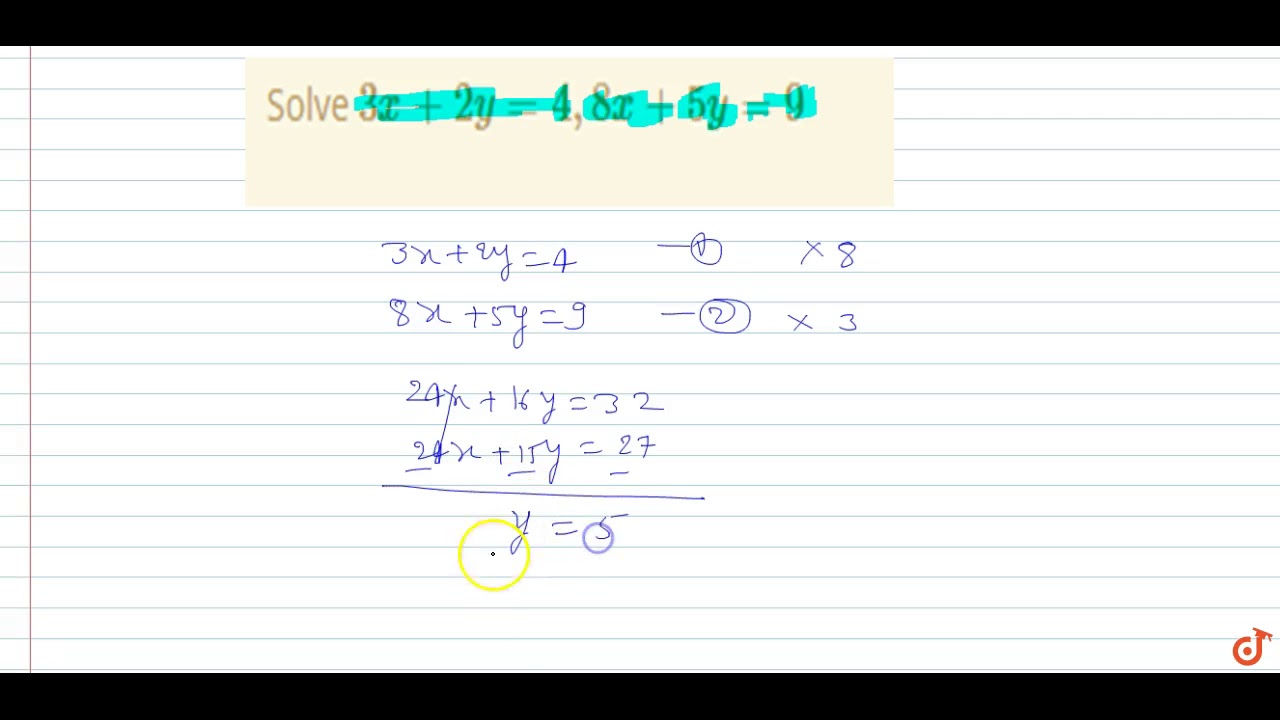 Solve 3x + 2y = 4, 8x + 5y = 9
3x + 2y = 4 — ① × 8
8x + 5y = 9 — ② × 3
24x + 16y = 32
24x + 15y = 27
y = 5